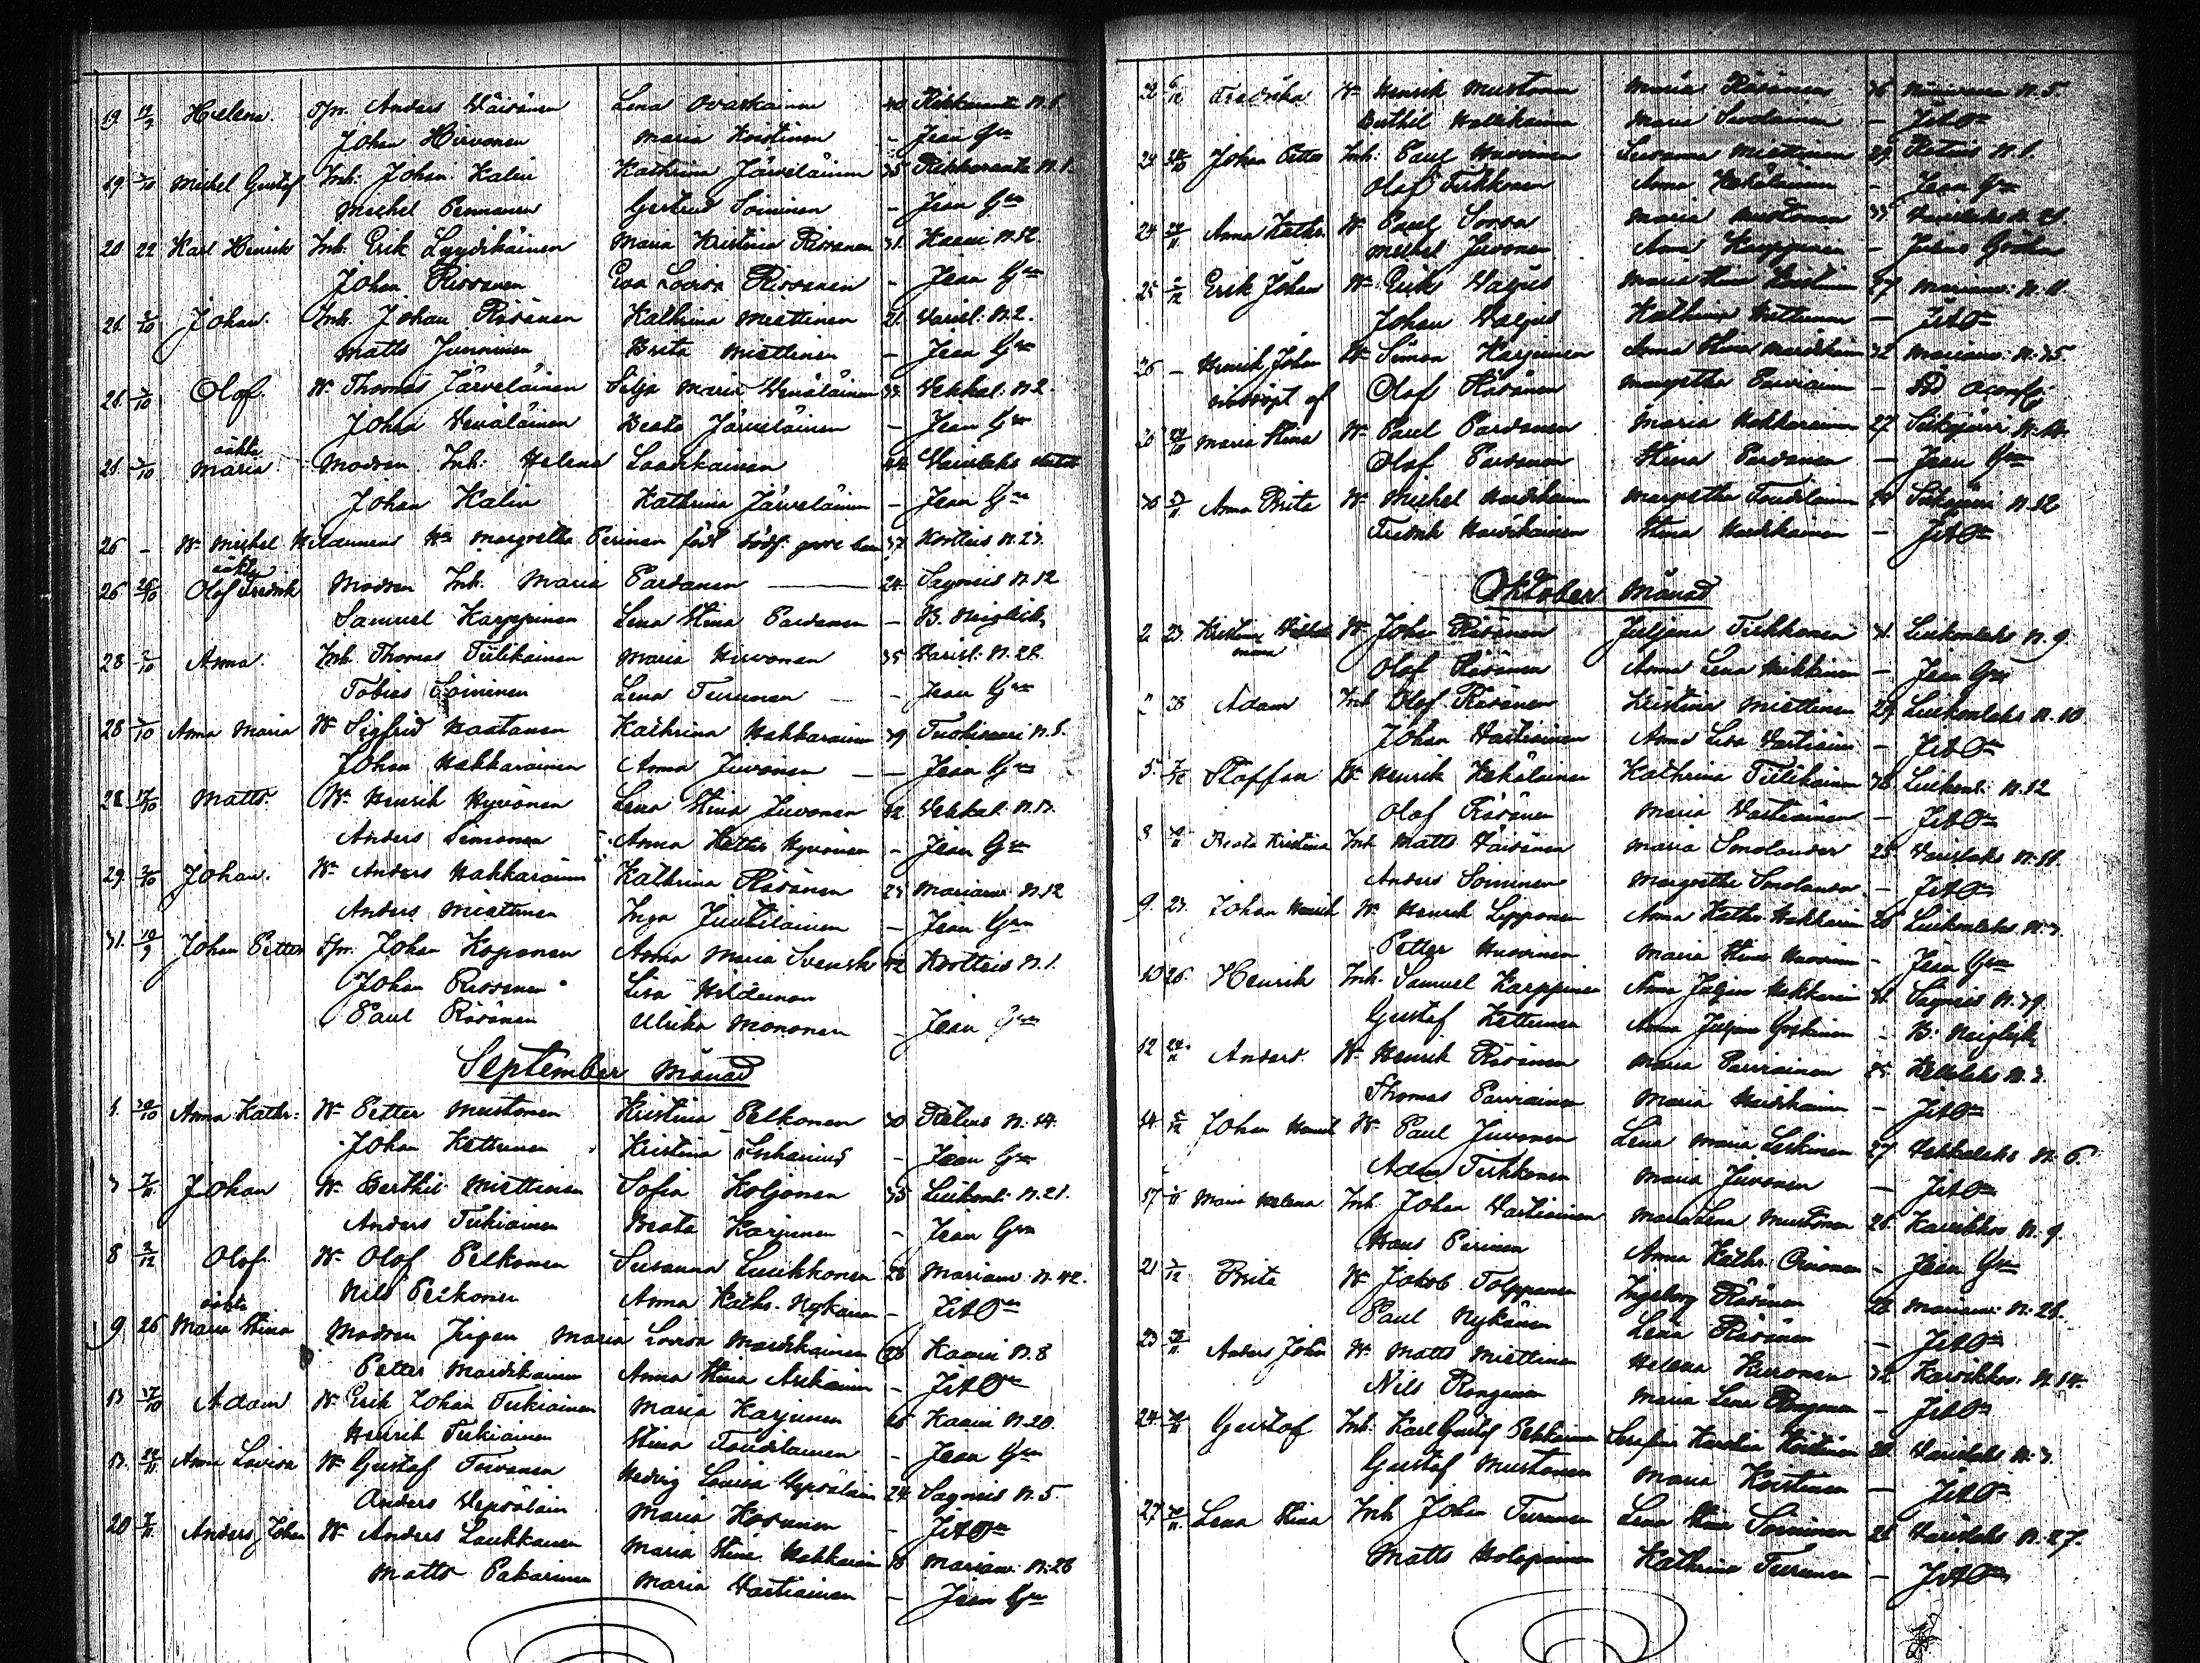 19 17/9 Helena. Spr. Anders Väisänen Lena Ovaskainen 40 Rekkaranta N. 6.
Johan Hirvonen Maria Koistinen - Jean Gn
19 3/10 Michel Gustaf Inh. Johan Kalin Kathrina Järveläinen 35 Rekkaranta N. 1.
Michel Pennanen Gertrud Soininen - Jean Gn
20 22 Karl Henrik Inh. Erik Lyydikäinen Maria Kristina Rissanen 31. Kaavi N. 12
Johan Rissanen Eva Lovisa Rissanen - Jean Gn
21 3/10 Johan. Inh. Johan Räsänen Kathrina Miettinen 21. Varisl. N. 2.
Matts Jumninen Brita Miettinen - Jean Gn
21 3/10 Olof. Bn Thomas Järveläinen Silja Maria Venäläinen 33. Vehkal. N. 2.
Johan Venäläinen Beata Järveläinen - Jean Gn
21 3/10 oäkta Maria Modren Inh. Helena Laasikainen 42
Johan Kalin Kathrina Järveläinen - Jean Gn
26 - Bn Michel Hildumens Ha Margretha Perinen född dödf. 37 Kortteis N. 23.
26 26/10 oäkta Olof Fredrik Modren Inh. Maria Pardanen 24. Sagneis N. 12
Samuel Karppinen Lena Stina Pardanen - B. Neiglick
28 2/10 Anna. Inh. Thomas Tiilikainen Maria Hirvonen 35 Varisl. N. 21.
Tobias Soininen Lena Turunen - Jean Gn
28 3/10 Anna Maria Bn Sigfrid Kastanen Kathrina Hakkarainen 39 Tuohivaari N. 5.
Johan Hakkarainen Anna Juvonen - Jean Gn
28 17/10 Matts. Bn Henrik Hyvönen Lena Stina Juvonen 32 Vehkal. N. 13.
Anders Simonen Anna Kathr. Hyvönen - Jean Gn
29. 3/10 Johan. Bn Anders Hakkarainen Kathrina Räsänen 23 Mariavu. N. 12
Anders Miettinen Inga Juutilainen - Jean Gn
31. 10/9 Johan Petter Spr. Johan Koponen Anna Maria Svensk 42 Kortteis N. 1.
Johan Rissanen Lisa Hilduman
Paul Räsänen Ulrika Mononen - Jean Gn
September Månad
1. 30/10 Anna Kathr. Bn Petter Mustonen Kristina Pelkonen 30 Retus N. 14.
Johan Kettunen Kristina - Jean Gn
3 7/11 Johan Bn Berthil Miettinen Sofia Koljonen 35 Luikonl. N. 21.
Anders Tiikiainen Beata Karjunen - Jean Gn
8 2/12 Olof Bn Olof Pelkonen Susanna Luukkonen 28 Mariavu. N. 42.
Nils Pelkonen Anna Kathr. Nykänen - JitOn
9 26 oäkta Maria Stina Modren Jigan Maria Lovisa Mardikainen 28 Kaavi N. 8
Petter Mardikainen Anna Stina - JitOn
13 17/10 Adam Bn Erik Johan Tiikiainen Maria Karjunen 26 Kaavi N. 20.
Henrik Tiikiainen Stina Toudilainen - Jean Gn
13. 24/11 Anna Lovisa Bn Gustaf Toivanen Hedvig Lovisa Vepsäläin 24 Sagneis N. 5.
Anders Vepsäläin Maria Kosunen - JitOn
20 7/11 Anders Johan Bn Anders Laukkanen Maria Stina Hakkarain 18 Mariavu N. 26
Matts Pakarinen Maria Vartiainen - Jean Gn
22 6/12 Fredrika Bn Henrik Mustonen Maria Räsänen 36 N. 5.
Berthil Walkkainen Maria - JitOn
23 Johan Petter Inh. Paul Huovinen Susanna Miettinen 29 Retus N. 1.
Olof Tirkkonen Anna Kekäläinen - Jean Gn
24 Anna Kathr. Bn Paul Sorsa Maria Mustonen 35
Michel Juvonen Anna Karppinen -
25 2/12 Erik Johan Bn Erik Valjus Maria Stina Koistinen 27 Mariavu. N. 11.
Johan Valjus Kathrina Kettunen - JitOn
26 - Henrik Johan Bn Simon Karjunen Anna Stina Mardikain 32 Mariavu. N. 35.
nöddöpt af Olof Räsänen Margretha Parviainen -
26 24/10 Maria Stina Bn Paul Pardanen Maria Hakkarainen 27 Siikajärvi N. 14.
Olof Pardanen Stina Pardanen - Jean Gn
30 Anna Brita Bn Michel Mardikainen Margretha Toudilainen Siikajärvi N. 12
Fredrik Mardikainen Stina Mardikainen - JitOn
Oktober Månad
2 23. Kristina Bn Johan Räsänen Juljana Tirkkonen 31. Luikonlaks N. 9.
Olof Räsänen Anna Lena Mikkinen - Jean Gn
2 28 Adam Inh Olof Räsänen Kristina Miettinen 29. Luikonlaks N. 10
Johan Vartiainen Anna Lisa Vartiainen - JitOn
5. 7/12 Staffan Bn Henrik Kekäläinen Kathrina Tiilikainen 38. Luikonl. N. 12
Olof Räsänen Maria Vartiainen - JitOn
8 Beata Kristina Inh Matts Väisänen Maria Smolander 25 Varislaks N. 11.
Anders Soininen Margretha Smolander - JitOn
9. 23. Johan Henrik Bn Henrik Lipponen Anna Kathr. Hakkarain 26 Luikonlaks N. 3.
Petter Huovinen Maria Stina Huovinen - Jean Gn
10 26. Henrik Inh. Samuel Karppinen Anna Juljana Hakkarain 31. Sagneis N. 39.
Gustaf Kettunen Anna Juljana - B. Neiglick
12 24/11 Anders. Bn Henrik Räsänen Maria Parviainen 35 N. 3.
Thomas Parviainen Maria Mardikainen - JitOn
14. 5/12 Johan Henrik Bn Paul Juvonen Lena Maria Leskinen 27 Vehkalaks N. 6.
Adam Tirkkonen Maria Juvonen - JitOn
17 Maria Helena Inh. Johan Vartiainen Maria Lena Mustonen 26. N. 9.
Hans Perinen Anna Kathr. Oinonen - Jean Gn
21 3/12 Brita Bn Jakob Tolppanen Ingeborg Räsänen 28 Mariavu. N. 28.
Paul Nykänen Lena Räsänen - JitOn
23 Anders Johan Bn Matts Miettinen Helena Kuronen 32 N. 14.
Nils Ronganen Maria Lena Ronganen - JitOn
24 Gustaf Inh. Karl Gustaf Pekkarinen Serafina Karolina Koistinen 28 Varislaks N. 3.
Gustaf Mustonen Maria Koistinen - JitOn
27 Lena Stina Inh Johan Turunen Lena Stina Soininen 26 Varislaks N. 27.
Matts Holopainen Kathrina Turunen - JitOn